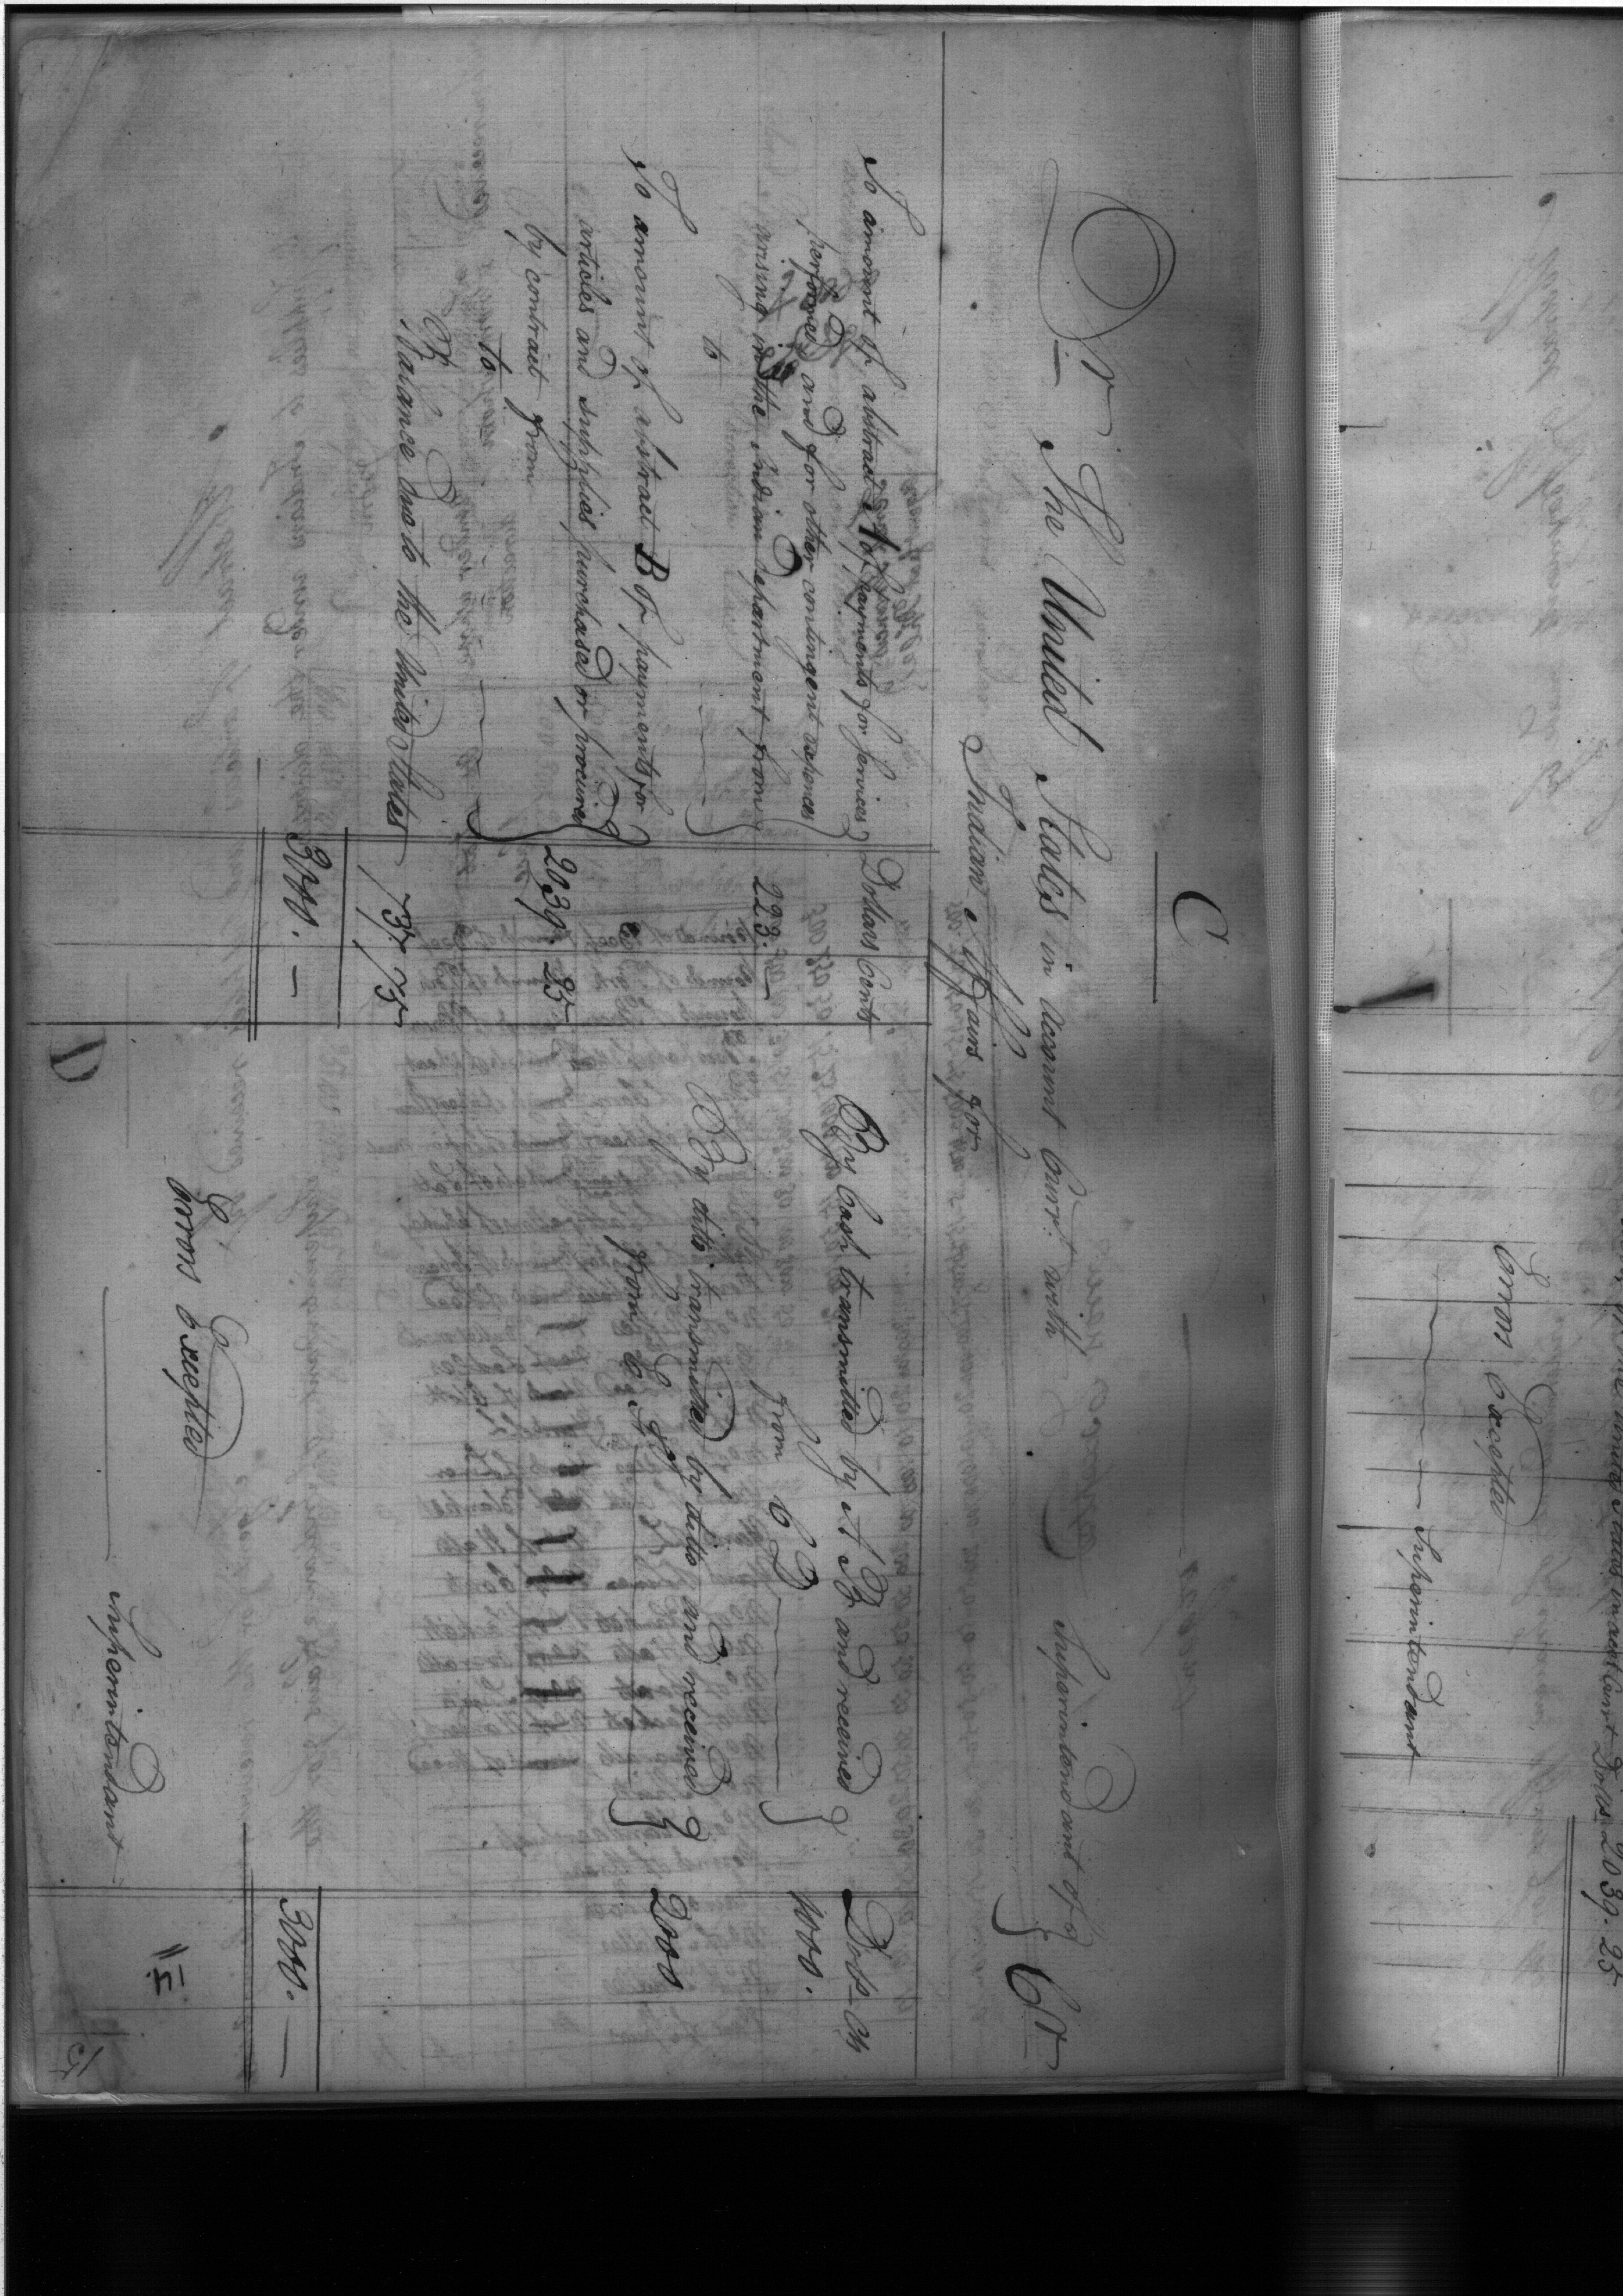 C
Dr The United States in account Curr.t with Superintendant of } Cr
Indian Affairs for
Dollars Cents
Dolls Cts
To amount of abstract A of payments for services
performed and for other contingent expences
arising in the Indian department from
to
223. —
To amount of abstract B of payments for
articles and supplies purchased or procured
by contract from
to
2039. 25
Balance due to the United States
737 75
3000. —
By Cash transmitted by A B and received
from C D
1000.
By ditto transmitted by ditto and received
from E F
2000
3000. —
Errors Excepted
Superintendant
D
15
Dolls 2039. 25
Errors Excepted
Superintendant